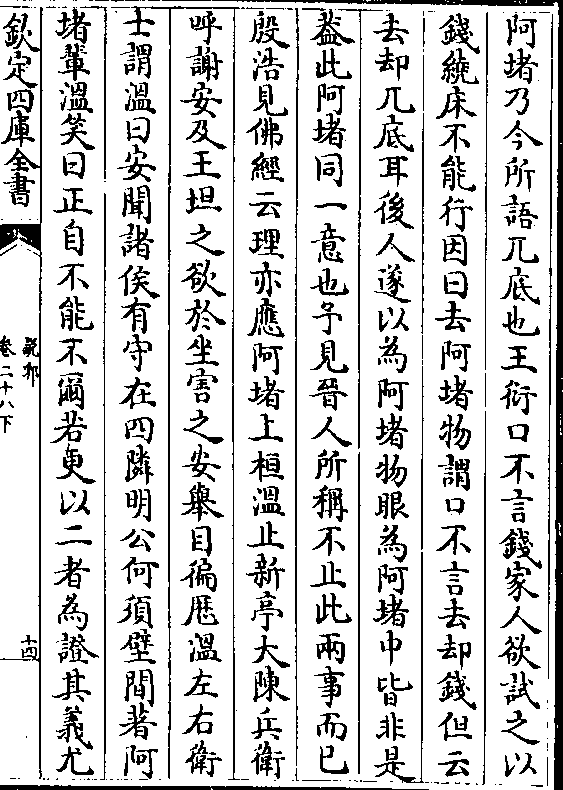 阿堵乃今所語兀底也王衍口不言錢家人欲試之以
錢繞床不能行因曰去阿堵物謂口不言去却錢但云
去却兀底耳後人遂以為阿堵物眼為阿堵中皆非是
葢此阿堵同一意也予見晉人所稱不止此兩事而已
殷浩見佛經云理亦應阿堵上桓溫止新亭大陳兵衛
呼謝安及王坦之欲於坐害之安舉目徧厯溫左右衛
士謂溫曰安聞諸侯有守在四隣明公何須壁間著阿
堵輩溫笑曰正自不能不爾若更以二者為證其義尤
欽定四庫全書
說郛
卷二十八下
十四